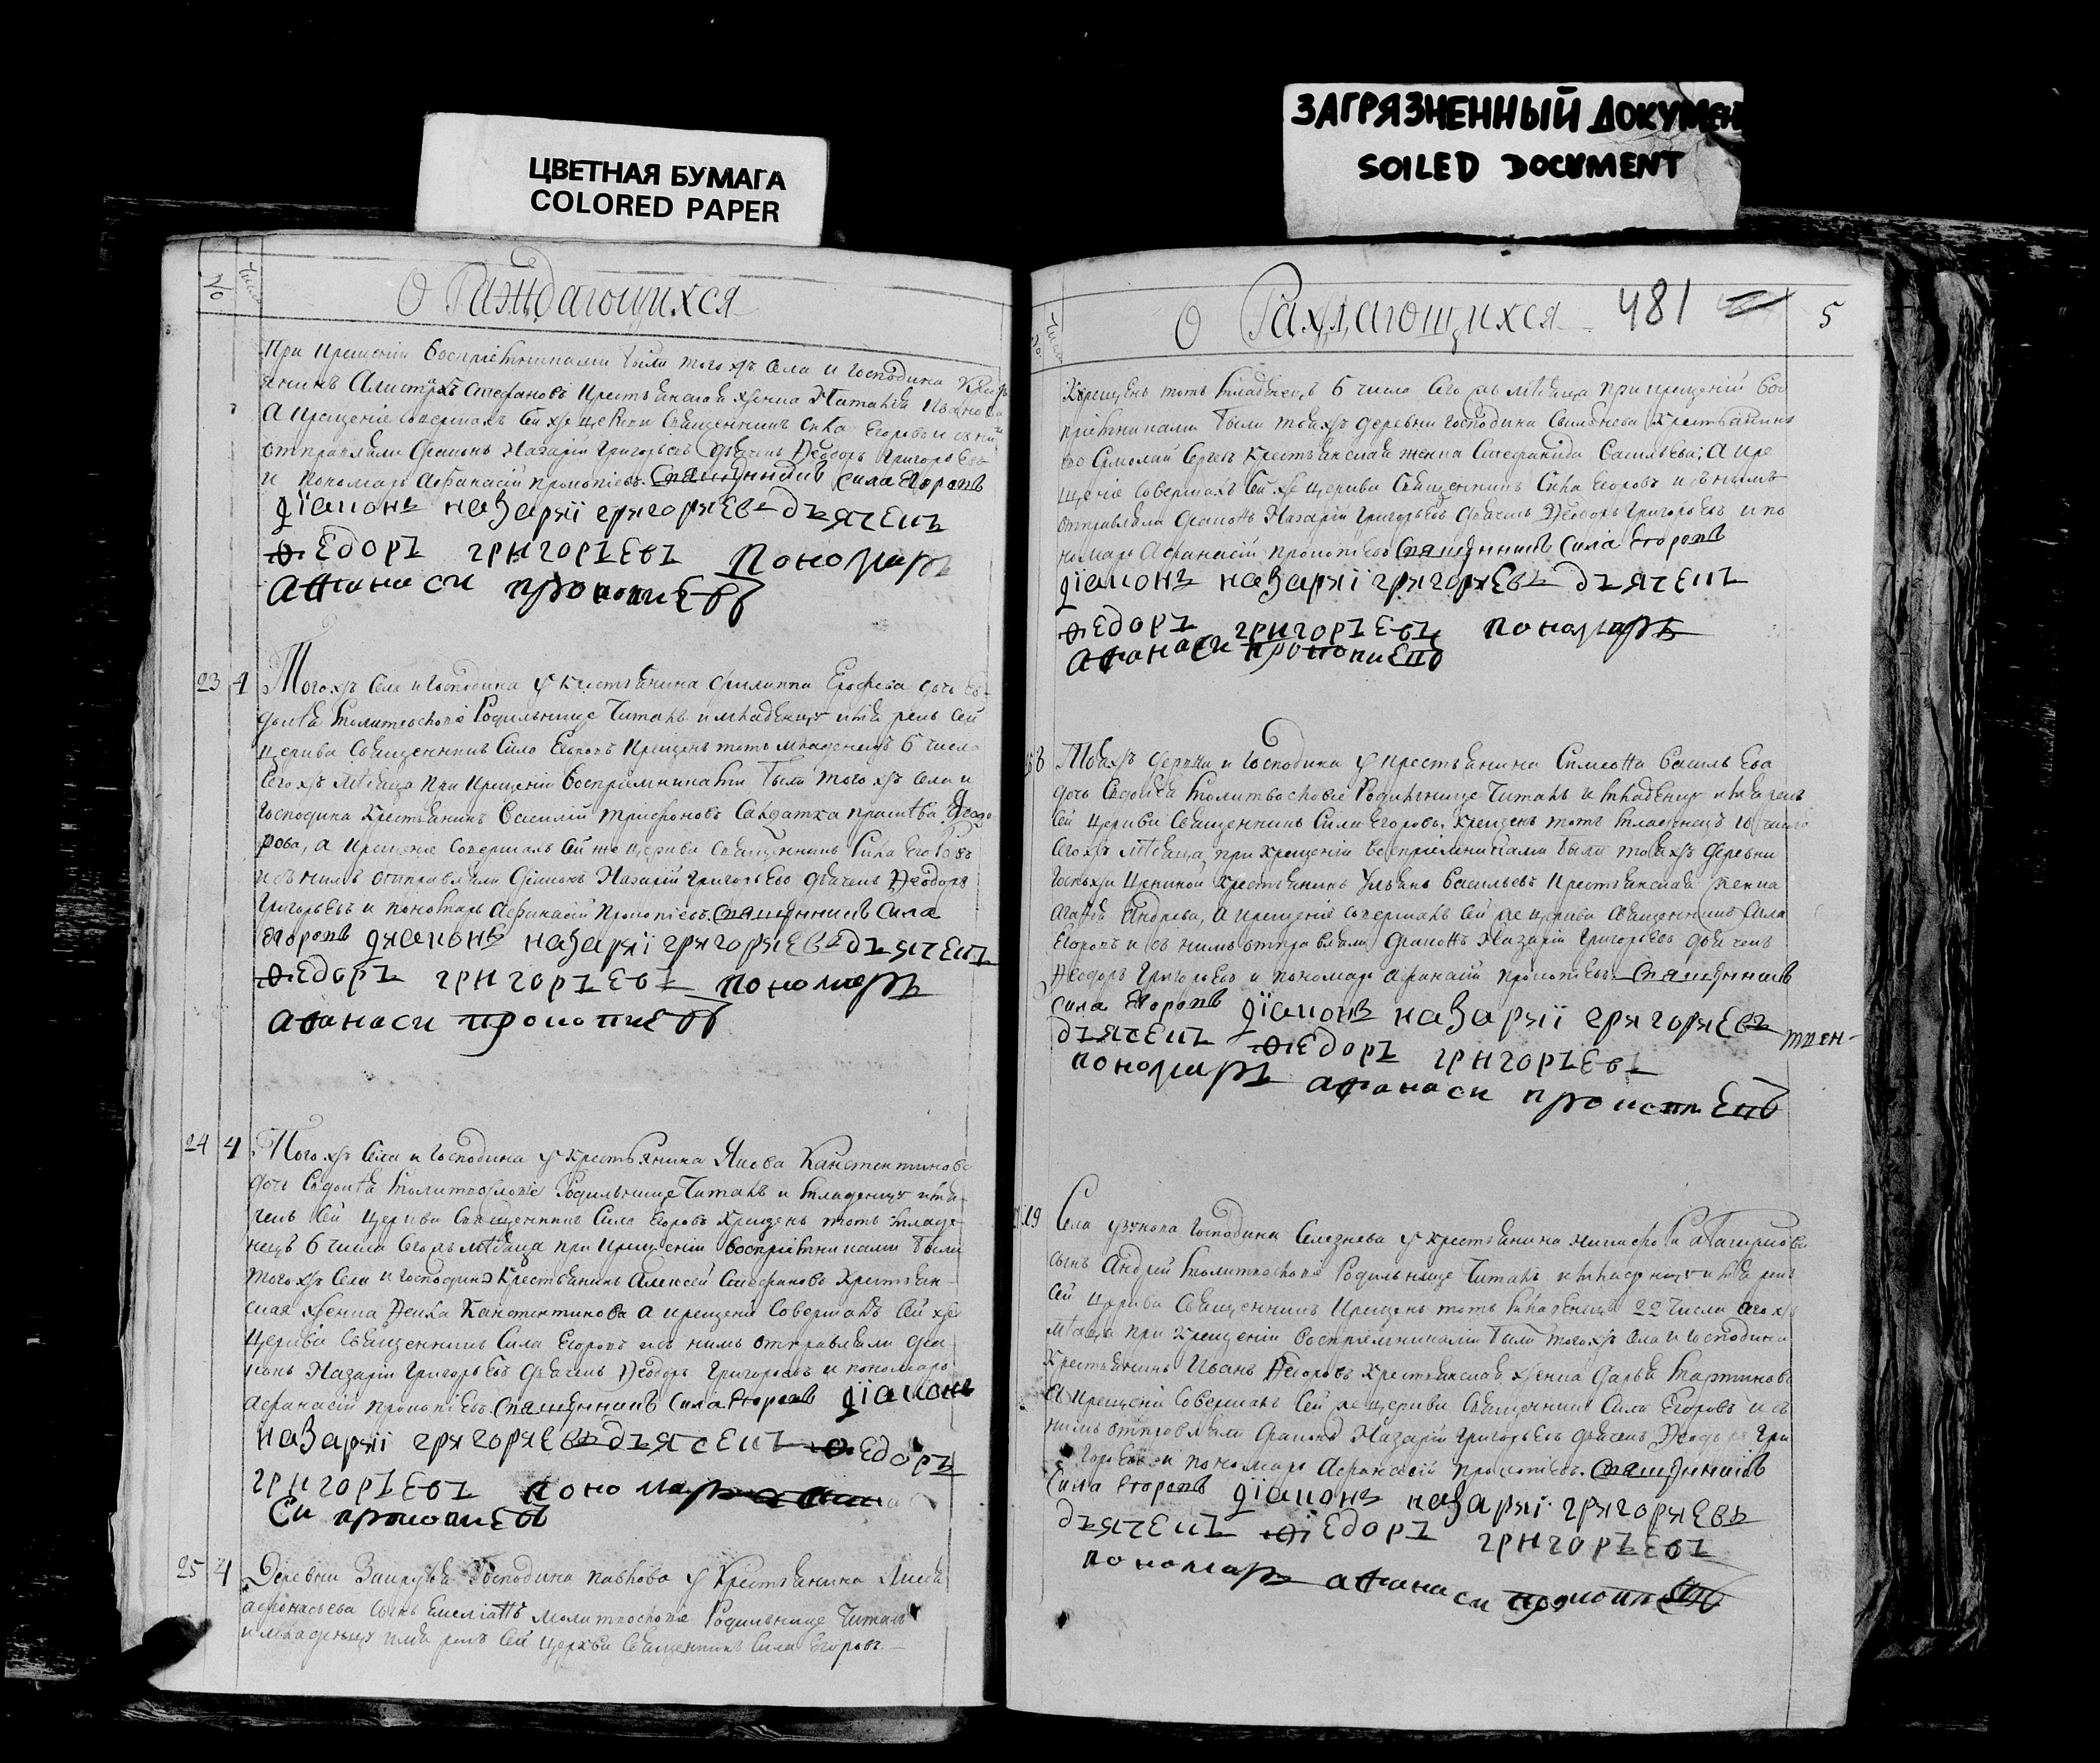 ЦВЕТНАЯ БУМАГА
COLORED PAPER
ЗАГРЯЗНЕННЫЙ ДОКУМЕН
SOILED DOCUMENT
О Раждающихся
При крещеніи воспріемниками были того жъ села и господина
Стефановъ крестьянская женка
а крещеніе совершалъ сей же церкви священникъ Сила Егоровъ и с ним
отправляли діаконъ Назарій Григорьевъ дьячекъ Ѳеодоръ Григорьевъ
и пономарь Афанасій Прокопіевъ. священникъ сила Егоровъ
діаконъ назаряї грягоряевъ дъячекъ
ѳедоръ григоръевъ пономаръ
афанаси прокопиевъ
23 4 Того жъ села и господина у крестьянина Филиппа Ерофеева дочь Ев-
докіа молитвословіе родильнице читалъ и младенцу имя рекъ сей
церкви священникъ Сила Егоровъ крещенъ тотъ младенецъ 6 числа
сего жъ мѣсяца при крещеніи воспріемниками были того жъ села и
господина крестьянинъ Василій Трифоновъ салдатка
рова, а крещеніе совершалъ сей же церкви священникъ Сила Егоровъ
и съ нимъ отправляли діаконъ Назарій Григорьевъ дьячекъ Ѳеодоръ
Григорьевъ и пономарь Афанасій Прокопіевъ. священникъ Сила
Егоровъ дяаконъ назаряї грягоряевъ дъячекъ
ѳедоръ григоръевъ пономаръ
афанаси прокопиевъ
24 4 Того жъ села и господина у крестьянина Якова Канстентинова
дочь Евдокіа молитвословіе родильнице читалъ и младенцу имя
рекъ сей церкви священникъ Сила Егоровъ крещенъ тотъ младе-
нецъ 6 числа сего жъ мѣсяца при крещеніи воспріемниками были
того жъ села и господина крестьянинъ Алексей Стефановъ крестьян-
ская женка Канстентинова а крещеніе совершалъ сей же
церкви священникъ Сила Егоровъ и съ нимъ отправляли діа-
конъ Назарій Григорьевъ дьячекъ Ѳеодоръ Григорьевъ и пономарь
Афанасій Прокопіевъ. священникъ сила Егоровъ діаконъ
назаряї грягоряевъ дъячекъ ѳедоръ
григоръевъ пономаръ
си прокопиевъ
25 4 Деревни господина Павлова у крестьянина
Афонасьева сынъ Емеліанъ молитвословіе родильнице читалъ
и младенцу имя рекъ сей церкви священникъ Сила Егоровъ
О Раждающихся 481 5
Крещенъ тотъ младенецъ 6 числа сего жъ мѣсяца при крещеніи вос
пріемниками были той жъ деревни господина крестьянинъ
Ермолай Сергеевъ крестьянская женка Стефанида Васильева; а кре
щеніе совершалъ сей же церкви священникъ Сила Егоровъ и съ нимъ
отправляли діаконъ Назарій Григорьевъ дьячекъ Ѳеодоръ Григорьевъ и по
номарь Афанасій Прокопіевъ священникъ сила Егоровъ
діаконъ назаряї грягоряевъ дъячекъ
ѳедоръ григоръевъ пономаръ
афанаси прокопиевъ
Той жъ деревни и господина у крестьянина Симеона Васильева
дочь Евдокіа молитвословіе родильнице читалъ и младенцу имя рекъ
сей церкви священникъ Сила Егоровъ. крещенъ тотъ младенецъ 10 числа
сего жъ мѣсяца, при крещеніи воспріемниками были той жъ деревни
крестьянинъ Ульянъ Васильевъ крестьянская женка
Агафіа Андреева, а крещеніе совершалъ сей же церкви священникъ Сила
Егоровъ и съ нимъ отправляли діаконъ Назарій Григорьевъ дьячекъ
Ѳеодоръ Григорьевъ и пономарь Афанасій Прокопіевъ. священникъ
сила Егоровъ діаконъ назаряї грягоряевъ
дъячекъ ѳедоръ григоръевъ
пономаръ афанаси прокопиевъ
19 Села господина Селезнева у крестьянина
сынъ Андрей молитвословіе родильнице читалъ и младенцу имя рекъ
сей церкви священникъ крещенъ тотъ младенецъ 22 числа сего жъ
мѣсяца при крещеніи воспріемниками были того жъ села и господина
крестьянинъ Иванъ Ѳеодоровъ крестьянская женка Дарья Мартинова
а крещеніе совершалъ сей же церкви священникъ Сила Егоровъ и съ
нимъ отправляли діаконъ Назарій Григорьевъ дьячекъ Ѳеодоръ Гри
горьевъ и пономарь Афанасій Прокопіевъ. священникъ
Сила Егоровъ діаконъ назаряї грягоряевъ
дъячекъ ѳедоръ григоръевъ
пономаръ афанаси прокопиевъ